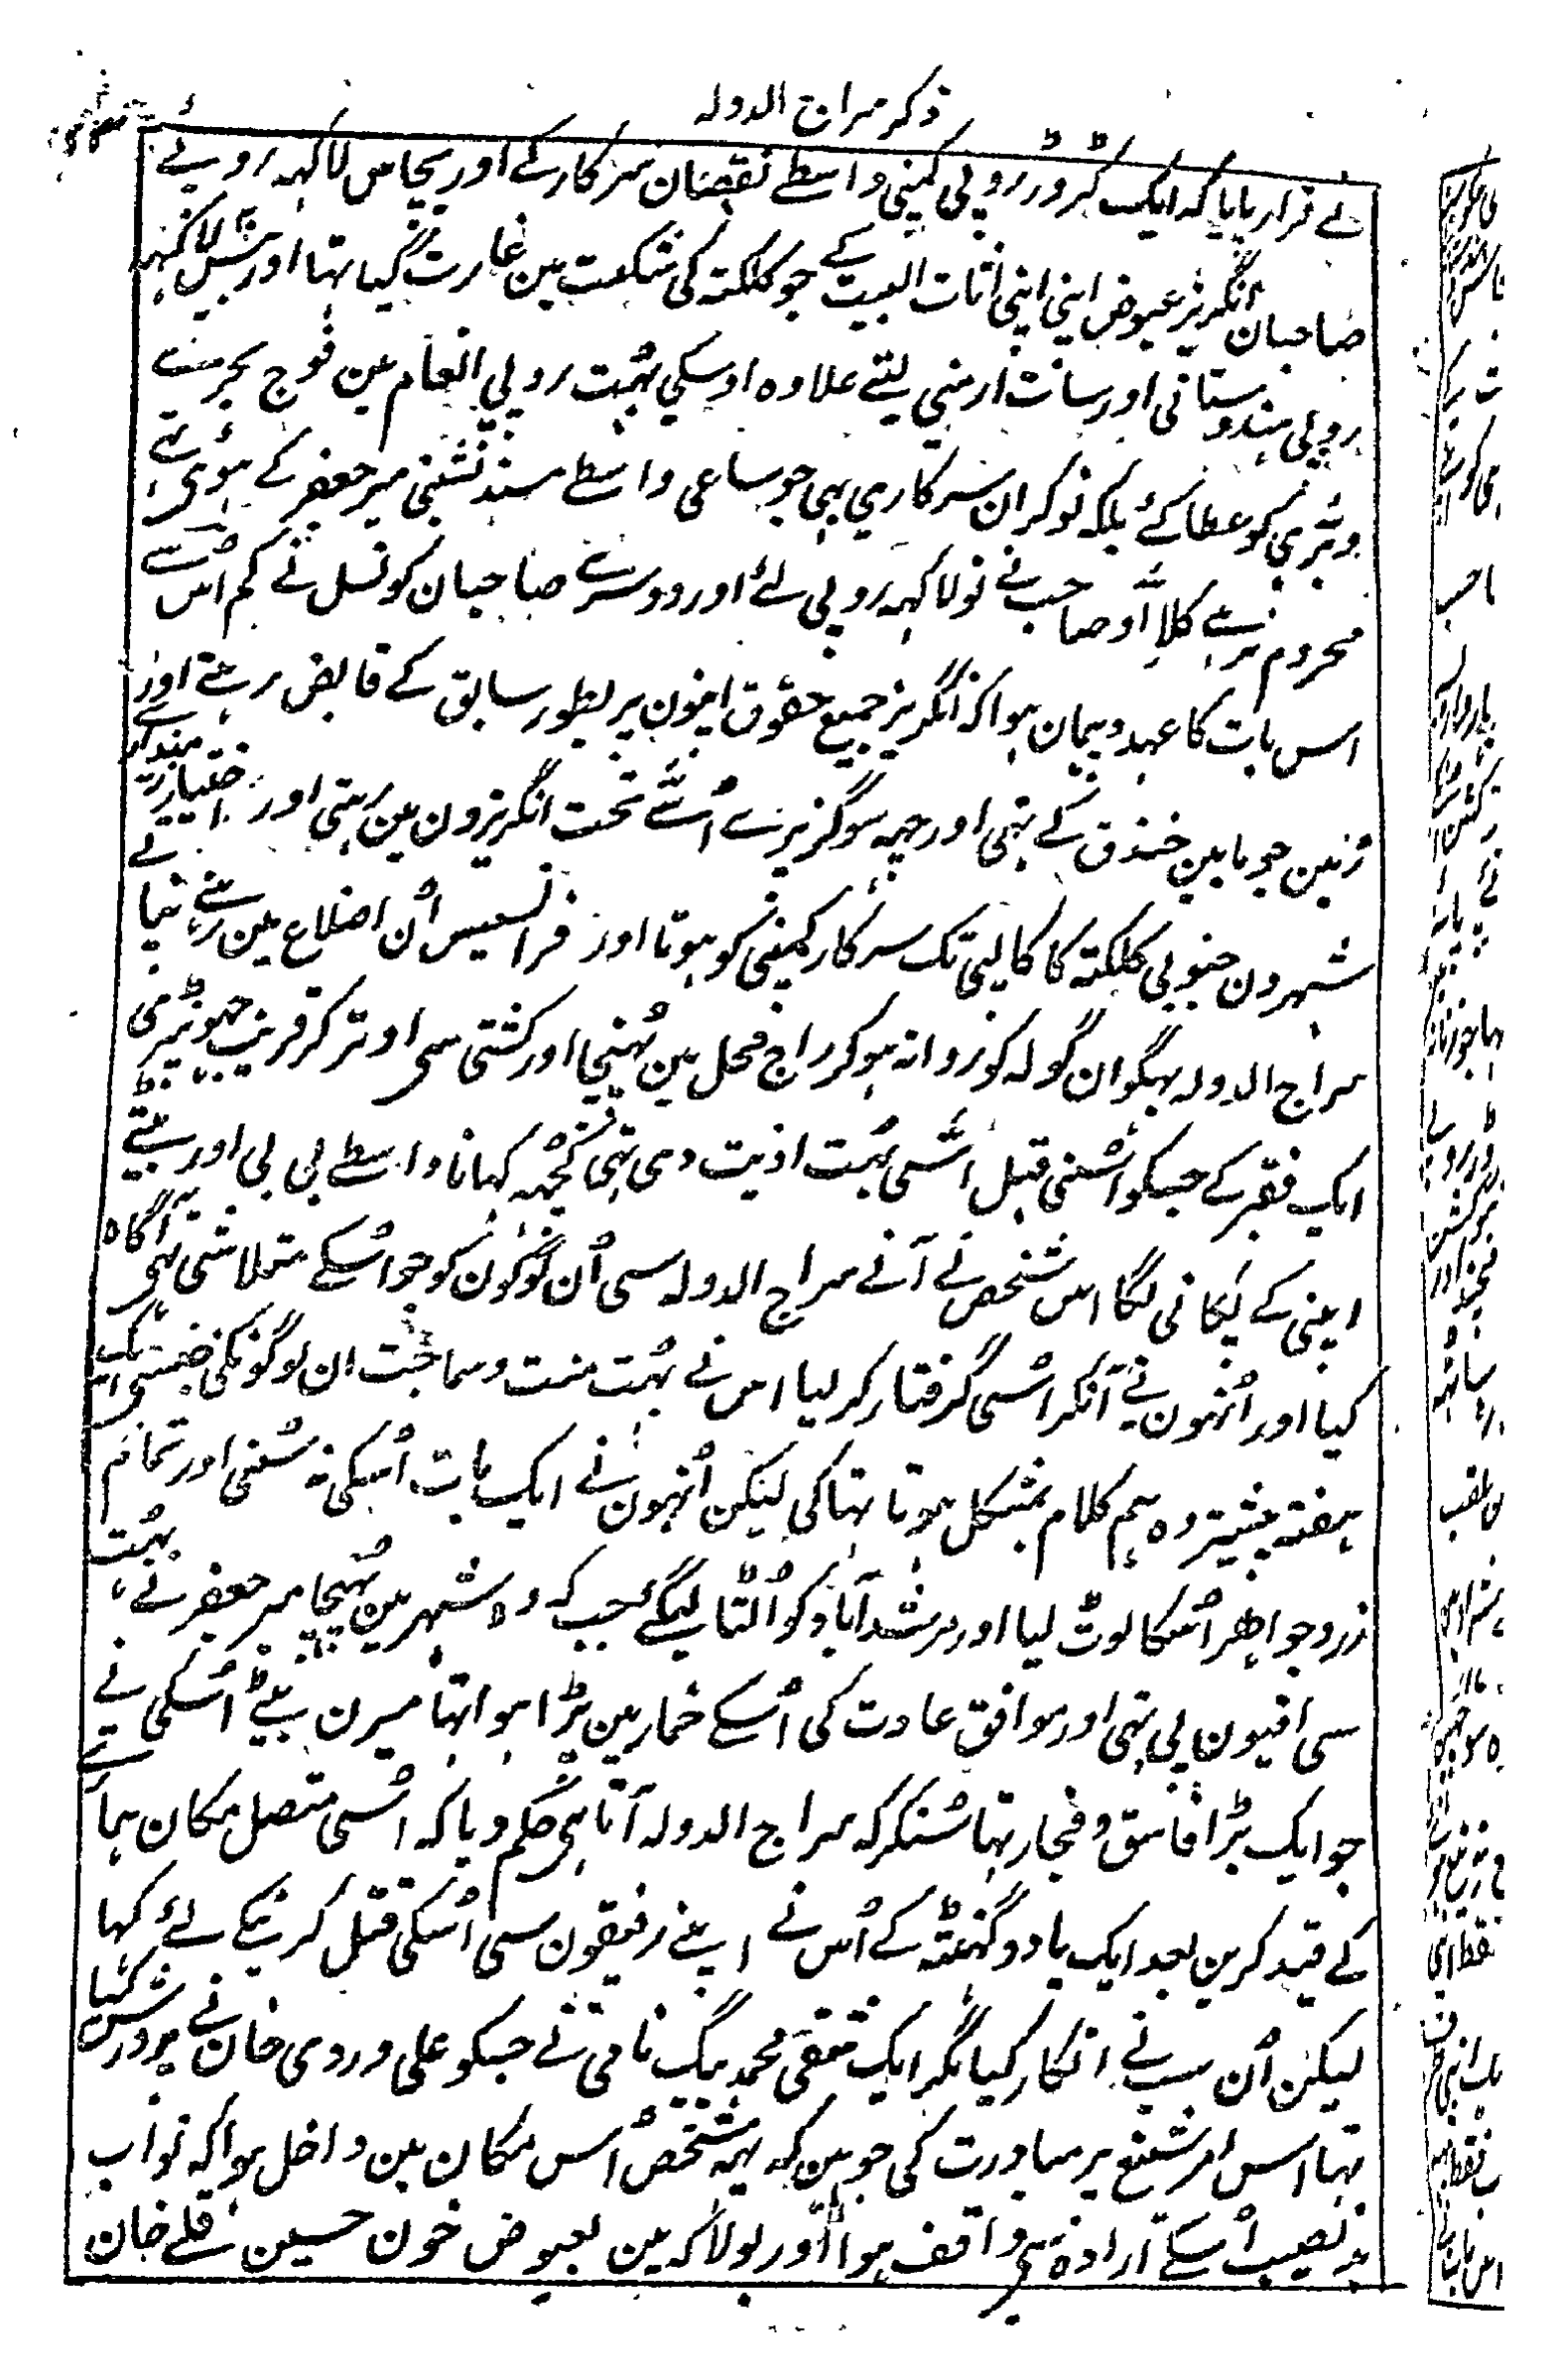 ذکر سراج الدولہ
نے قرار پایا کہ ایک کڑوڑ روپی کمپنی واسطے نقصان سرکار کے اور پچاس لاکہہ روپئے
صاحبان انگریز عیوض اپنی اپنی اثاث البیت کے جو کلکتہ کی شکست مین غارت گیا تہا اور بیس لاکہہ
روپی ہندوستانی اور سات ارمنی لیتے علاوہ اوسکی بہت روپی انعام مین فوج بحری
وبَرّی کو عطا کئے بلکہ نوکران سرکاری بہی جو ساعی واسطے مسند نشینی میر جعفر کے ہوئی تہے
محروم نرہے کلاِاَو صاحب نے نو لاکہہ روپی لئے اور دوسرے صاحبان کونسل نے کم اس سے
اس بات کا عہد وپیمان ہوا کہ انگریز جمیع حقوق اپنون پر بطور سابق کے قابض رہتے اور
زمین جو مابین خندق کے تہی اور چہہ سو گز پرے اُسّے تحت انگریزون مین رہتی اور اختیار زمینداری
شہرون جنوبی کلکتہ کا کالپی تک سرکار کمپنی کو ہوتا اور فرانسیس اُن اضلاع مین رہنے نپاتے
سراج الدولہ بہگوان گولہ کو روانہ ہو کر راج محل مین پہنچا اور کشتی سی اوتر کر قریب جہونپڑی
ایک فقیر کے جسکو اُسنی قبل اسّی بہت اذیت دی تہی کچہہ کہانا واسطے بی بی اور بیٹے
اپنی کے پکانی لگا اس شخص نے آنے سراج الدولہ سی اُن لوگون کو جو اُسکے متلاشی تہی آگاہ
کیا اور اُنہون نے آنکر اُسی گرفتار کر لیا اس نے بہت منت وسماجت ان لوگونکی جنسی ایک
ہفتہ پیشتر وہ ہم کلام بمشکل ہوتا تہا کی لیکن اُنہون نے ایک بات اُسکی نہ سُنی اور تمام
زر وجواہر اُسکا لوٹ لیا اور مرشدآباد کو اُلٹا لیگئے جب کہ وہ شہر مین پہنچا میر جعفر نے بہت
سی افیون پی تہی اور موافق عادت کی اُسکے خمار مین پڑا ہوا تہا میرن بیٹے اُسکی نے
جو ایک بڑا فاسق وفجار تہا سُنکر کہ سراج الدولہ آتا ہی حکم دیا کہ اُسی متصل مکان ہمارے
کے قید کرین بعد ایک یا دو گہنٹہ کے اُس نے اپنے رفیقون سی اُسکی قتل کرنیکے لئے کہا
لیکن اُن سب نے انکار کیا مگر ایک شقی محمد بیگ نامی نے جسکو علی وردی خان نے پرورش کیا
تہا اس امر شنیع پر مبادرت کی جوہین کہ یہہ شخص اُس مکان مین داخل ہوا کہ نواب
بد نصیب اُسکے ارادہ سی واقف ہوا اور بولا کہ مین بعیوض خون حسین قلے خان